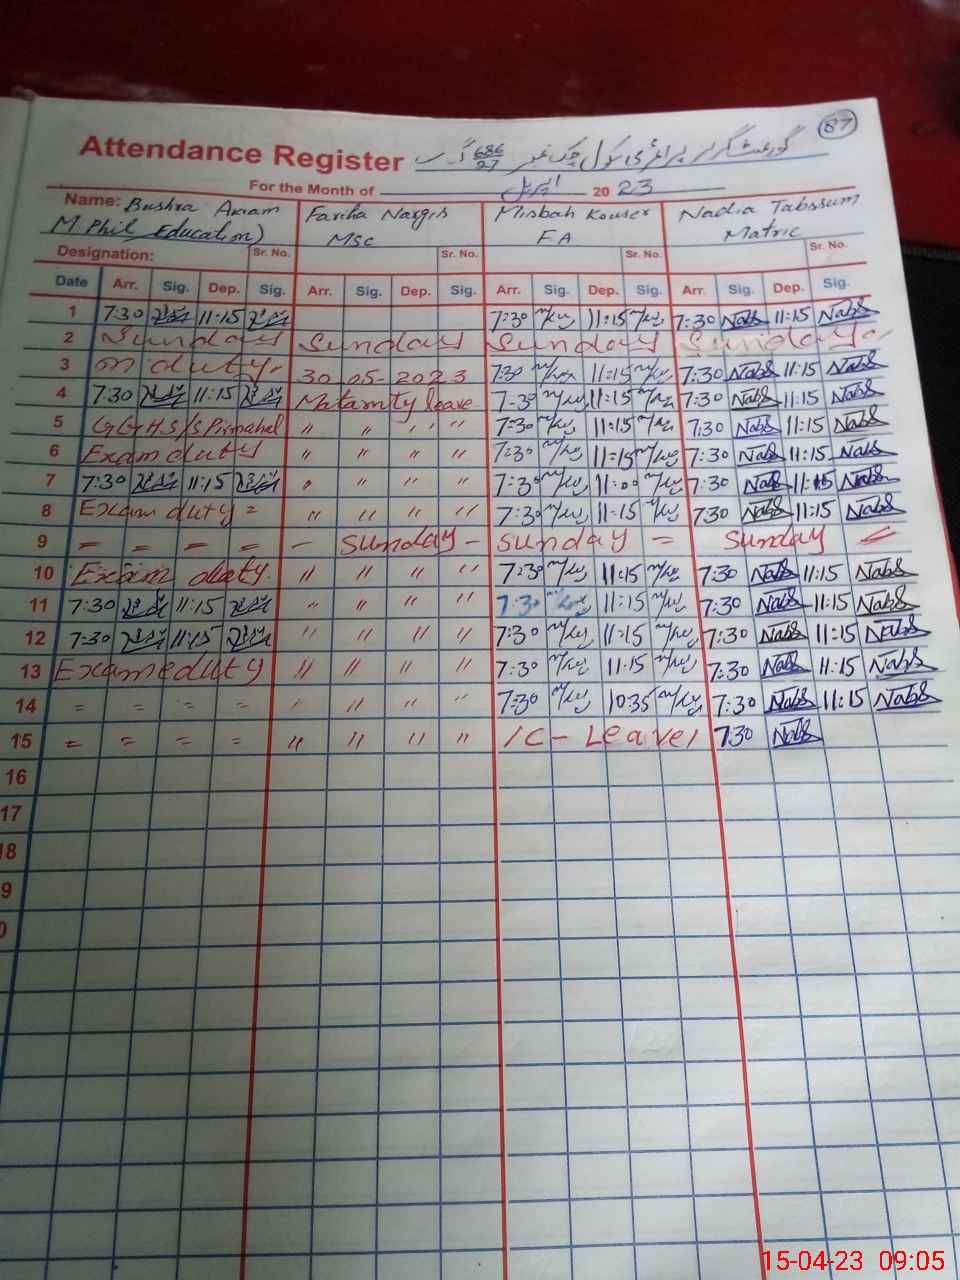 87
Attendance Register گورنمنٹ گرلز پرائمری سکول چک نمبر 686/27 گ ب
For the Month of اپریل 2023
Name: Bushra Akram Fariha Nargis Misbah Kouser Nadia Tabssum
M Phil Education) MSc FA Matric
Designation: Sr. No. Sr. No. Sr. No. Sr. No.
Date Arr. Sig. Dep. Sig. Arr. Sig. Dep. Sig. Arr. Sig. Dep. Sig. Arr. Sig. Dep. Sig.
1 7:30 11:15 7:30 11:15 7:30 NabS 11:15 NabS
2 Sunday Sunday Sunday Sunday
3 on duty 30 05-2023 7:30 11:15 7:30 NabS 11:15 NabS
4 7:30 11:15 Matarnity leave 7:30 11:15 7:30 NabS 11:15 NabS
5 GGHS/S Pirmahal " " " " 7:30 11:15 7:30 NabS 11:15 NabS
6 Exam duty " " " " 7:30 11:15 7:30 NabS 11:15 NabS
7 7:30 11:15 " " " " 7:30 11:00 7:30 NabS 11:15 NabS
8 Exam duty = " " " " 7:30 11:15 7:30 NabS 11:15 NabS
9 = = = = - Sunday - Sunday = Sunday =
10 Exam duty " " " " 7:30 11:15 7:30 NabS 11:15 NabS
11 7:30 11:15 " " " " 7:30 11:15 7:30 NabS 11:15 NabS
12 7:30 11:15 " " " " 7:30 11:15 7:30 NabS 11:15 NabS
13 Exame duty " " " " 7:30 11:15 7:30 NabS 11:15 NabS
14 = = = = " " " " 7:30 10:35 7:30 NabS 11:15 NabS
15 = = = = " " " " 1C - Leave 7:30 NabS
16
17
18
9
0
15-04-23 09:05